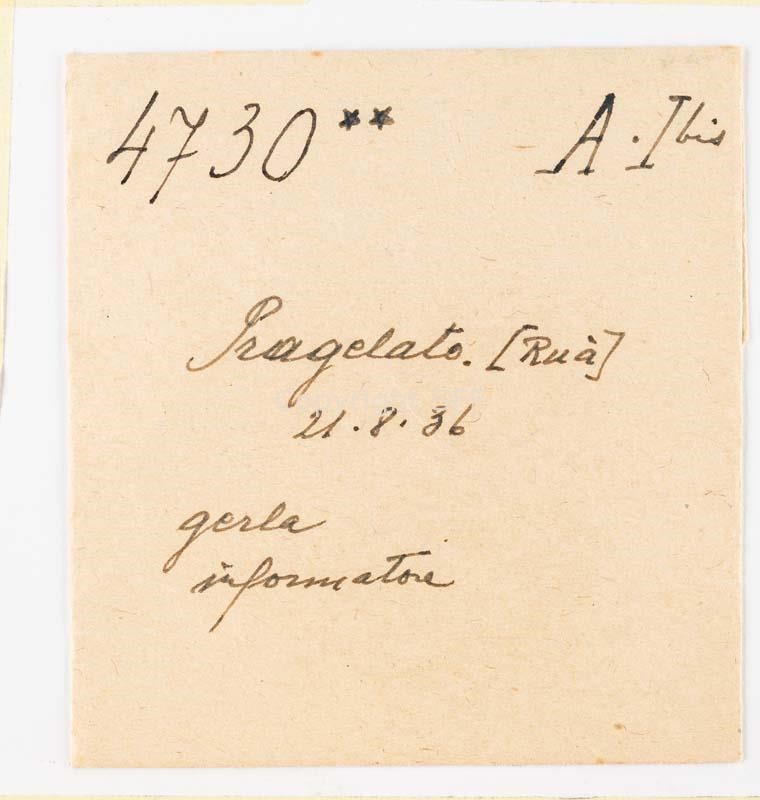 4730** A. I bis
Pragelato. [Ruà]
21.8.36
gerla
informatore